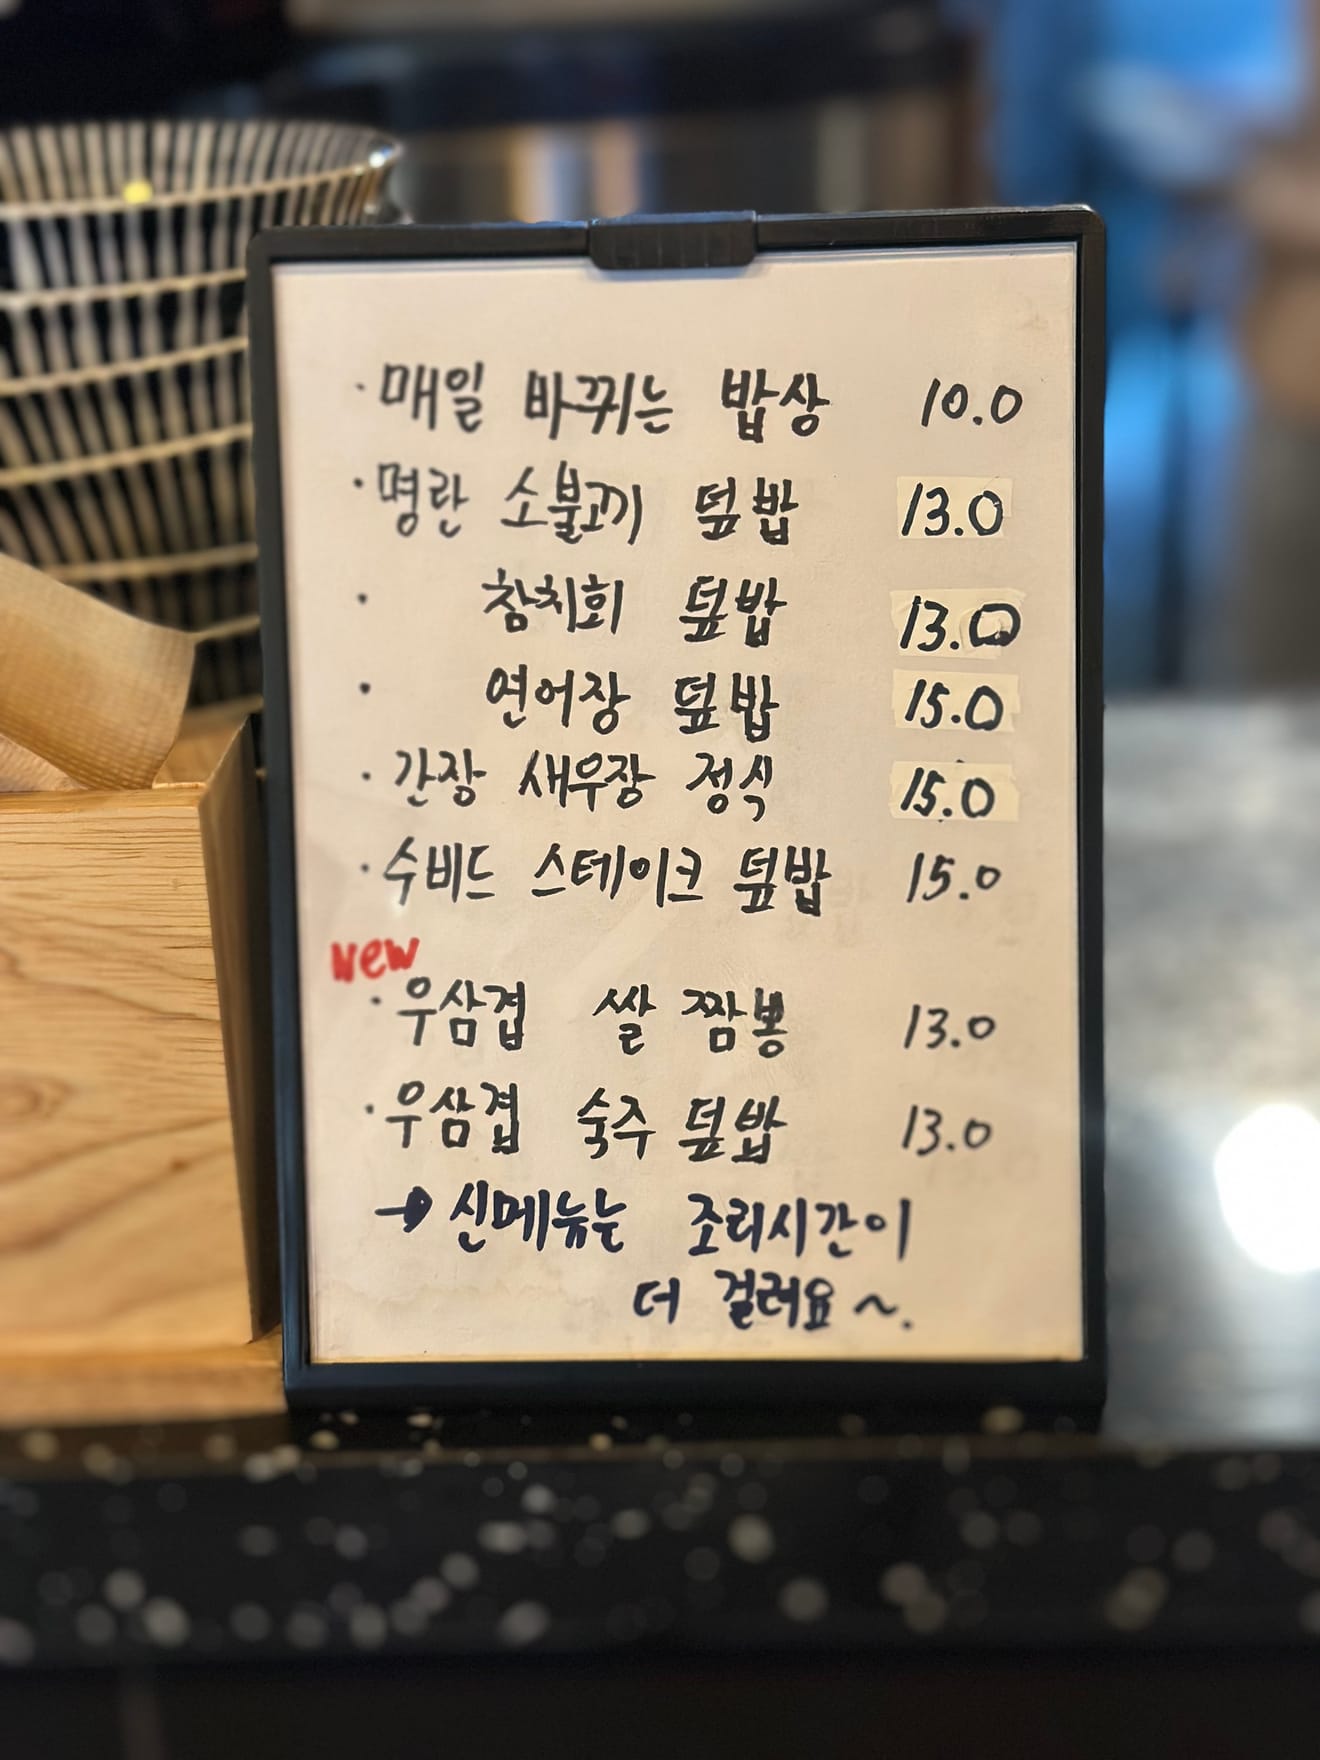 · 매일 바뀌는 밥상 10.0
· 명란 소불고기 덮밥 13.0
· 참치회 덮밥 13.0
· 연어장 덮밥 15.0
· 간장 새우장 정식 15.0
· 수비드 스테이크 덮밥 15.0
New
· 우삼겹 쌀 짬뽕 13.0
· 우삼겹 숙주 덮밥 13.0
→ 신메뉴는 조리시간이
더 걸려요~.